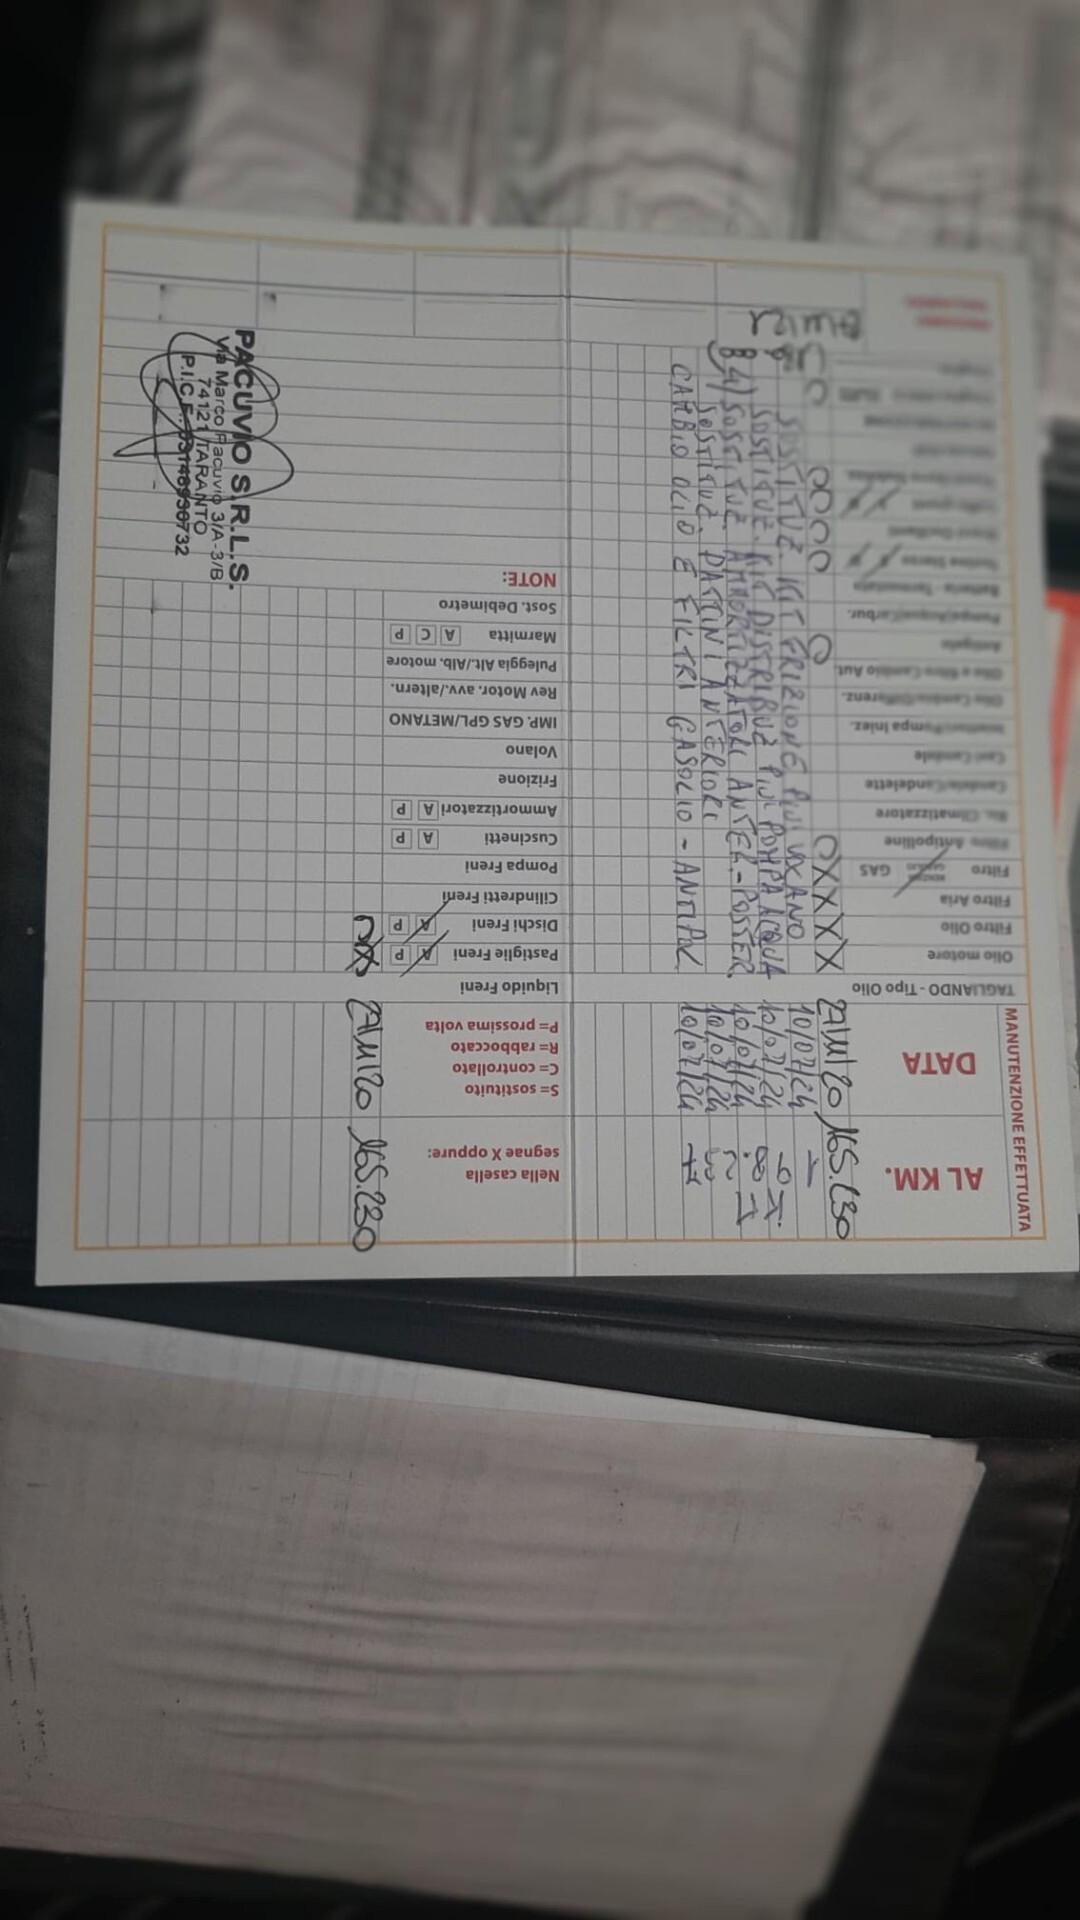 MANUTENZIONE EFFETTUATA
AL KM.
DATA
TAGLIANDO - Tipo Olio
Olio motore
Filtro Olio
Filtro Aria
Filtro GAS
Filtro Antipolline
Ric. Climatizzatore
Candele/Candelette
Cavi Candele
Iniettori/Pompa Iniez.
Olio Cambio/Differenz.
Olio e filtro Cambio Aut.
Antigelo
Pompa/Acqua/Carbur.
Batteria - Termostato
165.230
10/07/24
10/07/24
10/07/24
10/07/24
10/07/24
SOSTITUZ. KIT FRIZIONE PIÙ VOLANO
SOSTITUZ. KIT DISTRIBUZ. PIÙ POMPA ACQUA
SOSTITUZ. AMMORTIZZATORI ANTER.-POSTER.
SOSTITUZ. PATTINI ANTERIORI
CAMBIO OLIO E FILTRI GASOLIO - ANTIPOL.
Nella casella
segnae X oppure:
S= sostituito
C= controllato
R= rabboccato
P= prossima volta
Liquido Freni
Pastiglie Freni A P
Dischi Freni A P
Cilindretti Freni
Pompa Freni
Cuscinetti A P
Ammortizzatori A P
Frizione
Volano
IMP. GAS GPL/METANO
Rev Motor. avv./altern.
Puleggia Alt./Alb. motore
Marmitta A C P
Sost. Debimetro
NOTE:
165.230
PACUVIO S.R.L.S.
Via Marco Pacuvio 3/A-3/B
74121 TARANTO
P.I.C.F.: 03148930732